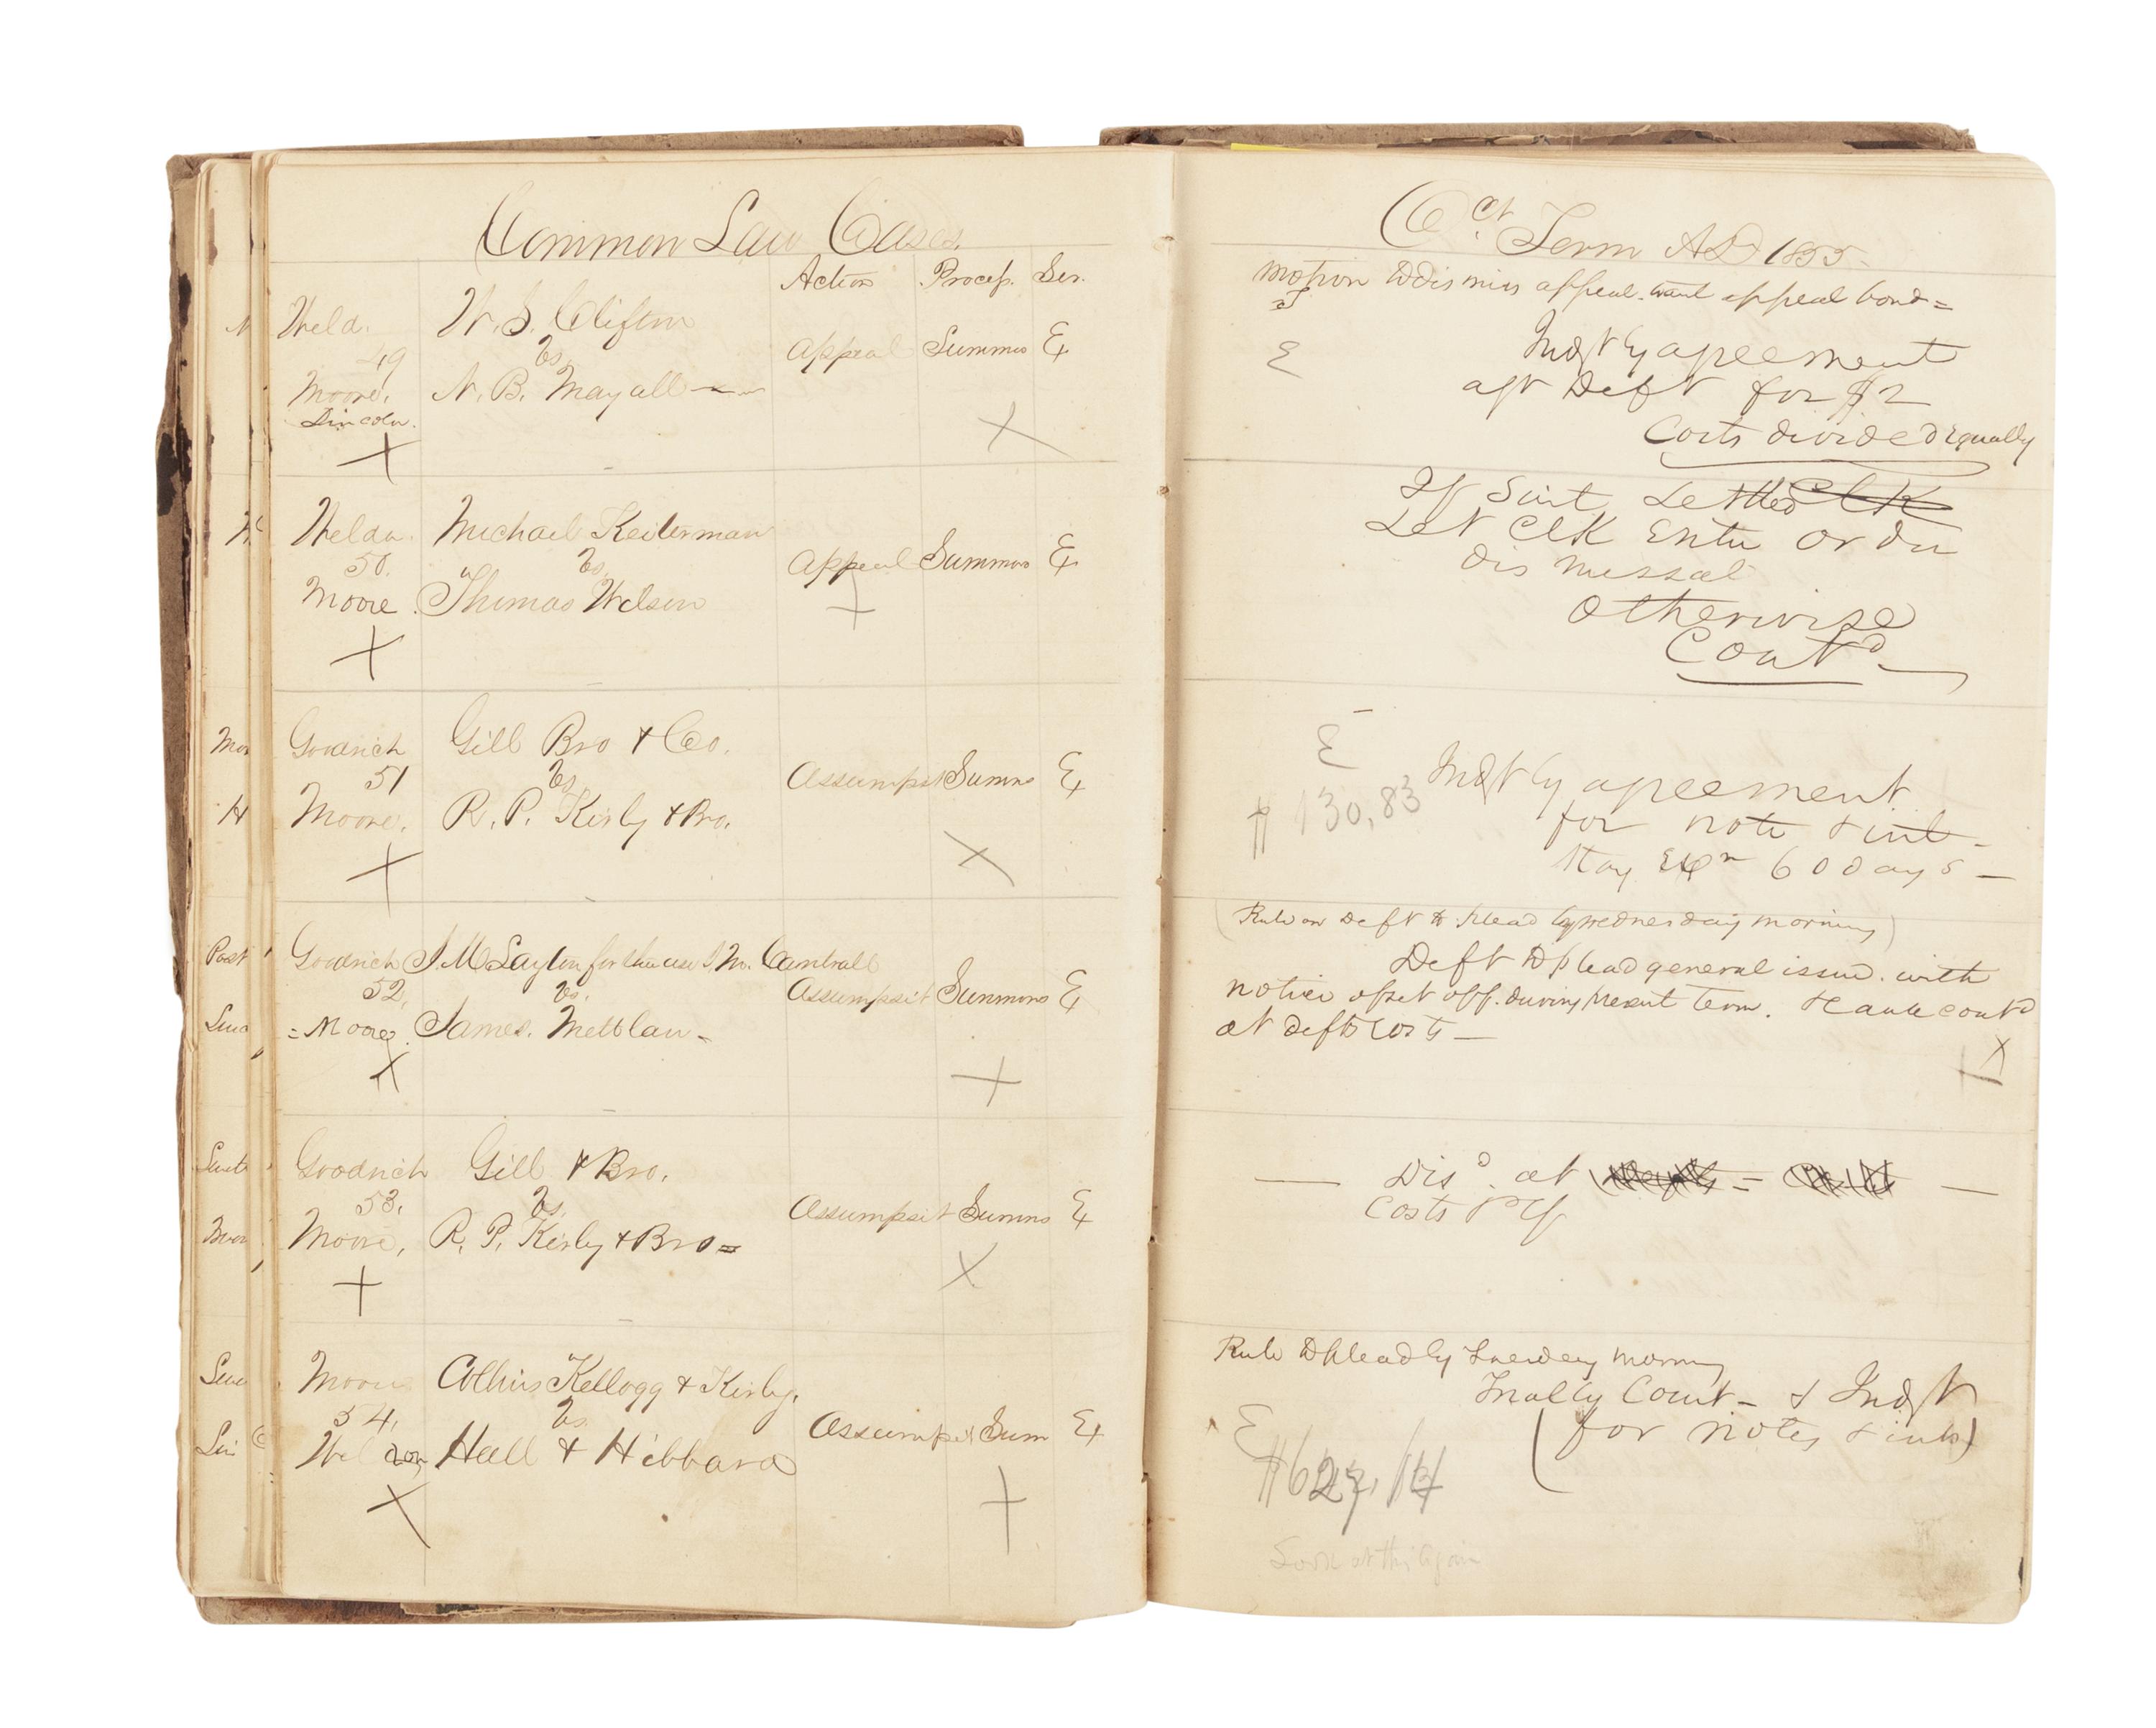 Common Law Cases.
Action Process. Ser.
Weldn. W. S. Clifton
49 Vs. Appeal Summos Ex
Moore. N. B. Mayall
Lincoln.
X X
Weldn. Michael
50. Vs. Appeal Summons Ex
Moore. Thomas Wilson
X
Goodrich Gill Bro & Co.
51 Vs Assumpsit Summs Ex
Moore. R. P. Kirby & Bro.
X X
Goodrich J. M. Layton for the use J. No. Cantrall
52, Vs. Assumpsit Summons Ex
= Moore. James.
X
Goodrich Gill & Bro.
53. Vs. Assumpsit Summs Ex
Moore, R. P. Kirby & Bro =
X
Moore Collins Kellogg & Kirby.
54, Vs. Assumpsit Sum Ex
Weldon Hall & Hibbard
X
Oct. Term AD 1855
Motion to dismiss appeal. want appeal bond =
E Judgt by agreement
agt Deft for $2
Costs divided equally
If Suit settled Clk
Let Clk Enter order
dismissal
otherwise
Contd
E
$130,83 Judgt by agreement
for note & int -
Stay Exon 60 days -
(Rule on Deft to plead by wednesday morning)
Deft to plead general issue. with
notice of set off. during present Term. & cause contd
at defts costs -
X
Disd. at
Costs Plff
Rule to plead by Tuesday morning
Trial by Court - & Judgt
E (for notes & int)
Look at this again